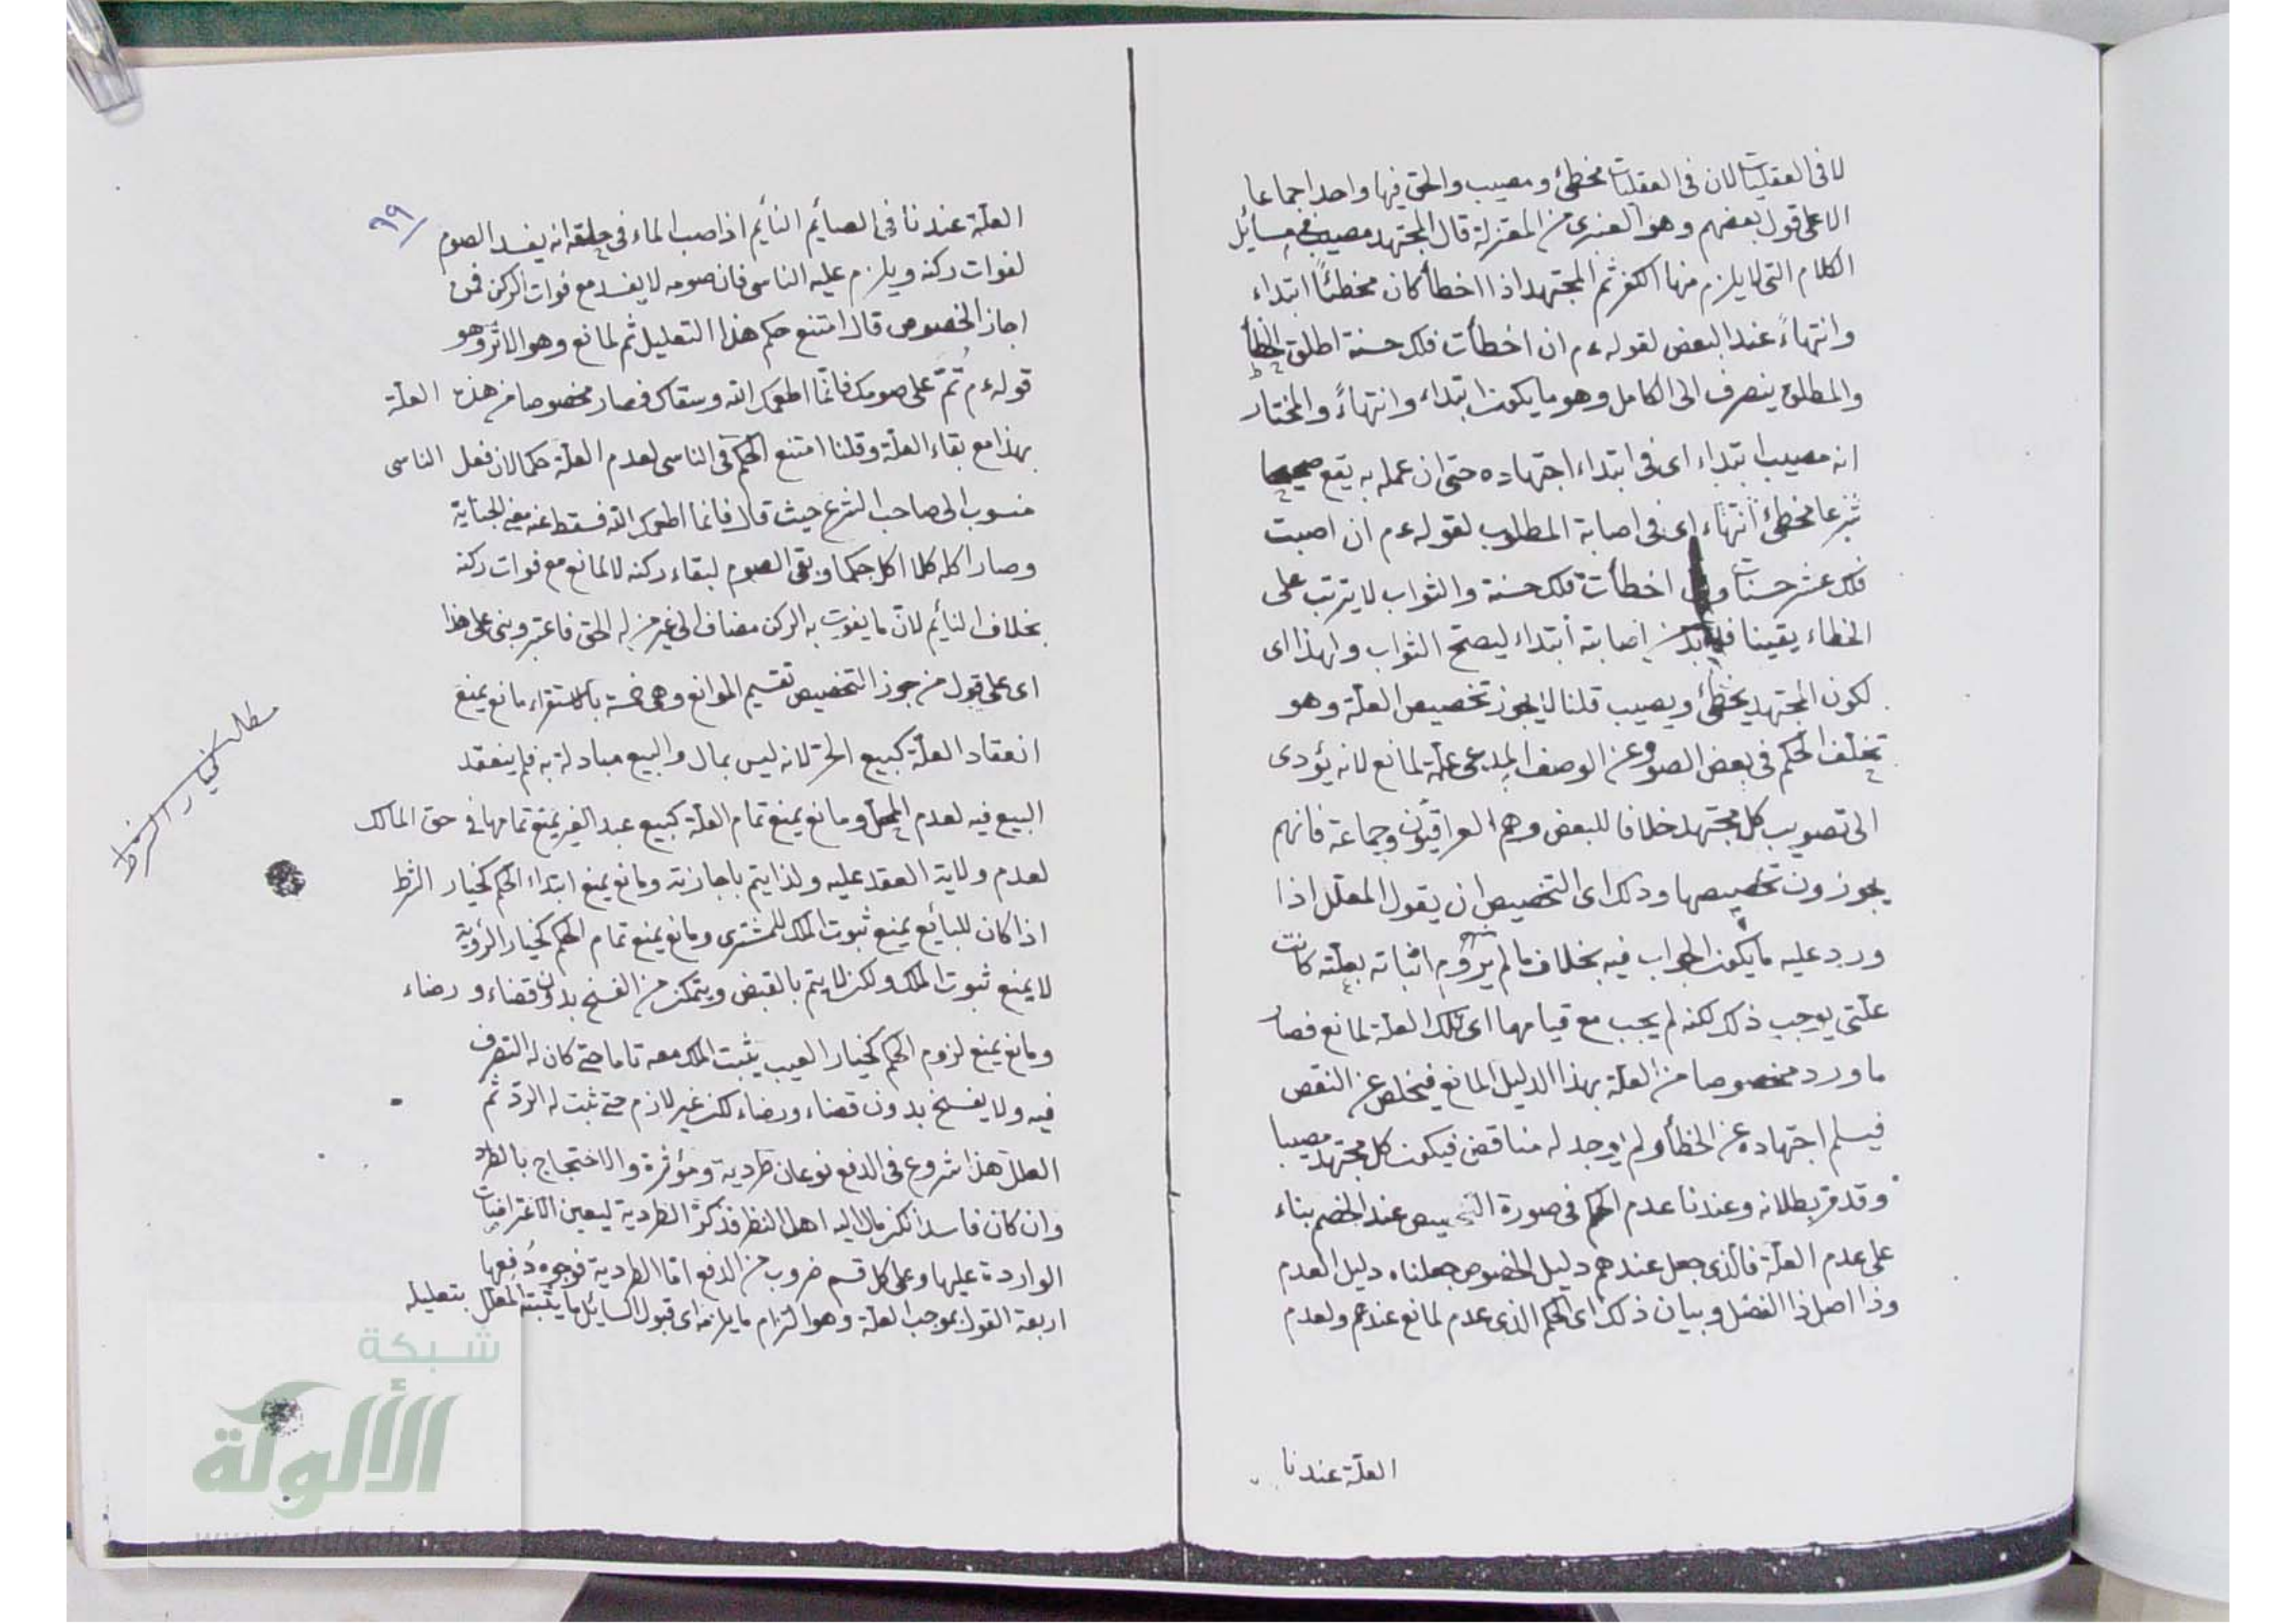 لا فى العقليات لان فى العقليات مخطئ ومصيب والحق فيها واحد اجماعا
الا على قول بعضهم وهو العنبرى من المعتزلة قال المجتهد مصيب فى مسائل
الكلام التى لا يلزم منها الكفر ثم المجتهد اذا اخطأ كان مخطئاً ابتداء
وانتهاءً عند البعض لقوله ءم ان اخطأت فلك حسنة اطلق الخطأ
والمطلق ينصرف الى الكامل وهو ما يكون ابتداء وانتهاءً والمختار
انه مصيب ابتداء اى فى ابتداء اجتهاده حتى ان عمله به يقع صحيحا
شرعا مخطئ انتهاء اى فى اصابة المطلوب لقوله ءم ان اصبت
فلك عشر حسنات وان اخطأت فلك حسنة والثواب لا يترتب على
الخطاء يقينا فلا بد من اصابته ابتداء ليصح الثواب ولهذا اى
لكون المجتهد يخطئ ويصيب قلنا لا يجوز تخصيص العلة وهو
تخلف الحكم فى بعض الصور عن الوصف المدعى علة لمانع لانه يؤدى
الى تصويب كل مجتهد خلافا للبعض وهم العراقيون وجماعة فانهم
يجوزون تخصيصها وذلك اى التخصيص ان يقول المعلل اذا
ورد عليه ما يكون الجواب فيه بخلاف ما لم يروم اثباته بعلته كانت
علتى يوجب ذلك لكنه لم يجب مع قيامها اى تلك العلة لمانع فصار
ما ورد مخصوصا من العلة بهذا الدليل المانع فيخلص عن النقص
فيسلم اجتهاده عن الخطأ ولم يوجد له مناقض فيكون كل مجتهد مصيبا
وقد مر بطلانه وعندنا عدم الحكم فى صورة التخصيص عند الخصم بناء
على عدم العلة فالذى جعل عندهم دليل الخصوص جعلناه دليل العدم
وذا اصل ذا الفصل وبيان ذلك اى الحكم الذى عدم لمانع عندهم ولعدم
العلة عندنا
٩٩
العلة عندنا فى الصائم النائم اذا صب الماء فى حلقه انه يفسد الصوم
لفوات ركنه ويلزم عليه الناسى فان صومه لا يفسد مع فوات الركن فمن
اجاز الخصوص قال امتنع حكم هذا التعليل ثم لمانع وهو الاثر وهو
قوله ءم تُمّ على صومك فانما اطعمك الله وسقاك فصار مخصوصا من هذه العلة
بهذا مع بقاء العلة وقلنا امتنع الحكم فى الناسى لعدم العلة حكما لان فعل الناسى
منسوب الى صاحب الشرع حيث قال فانما اطعمك الله فسقط عنه معنى الجناية
وصار اكله كلا اكل حكما وبقى الصوم لبقاء ركنه لا لمانع مع فوات ركنه
بخلاف النائم لان ما يفوت به الركن مضاف الى غير من له الحق فاعتبر وبنى على هذا
اى على قول من جوز التخصيص تقسيم الموانع وهى خمسة بالاستقراء مانع يمنع
انعقاد العلة كبيع الحر لانه ليس بمال والبيع مبادلة به فلم ينعقد
البيع فيه لعدم المحل ومانع يمنع تمام العلة كبيع عبد الغير يمنع تمامها فى حق المالك
لعدم ولاية العقد عليه ولذا يتم باجازته ومانع يمنع ابتداء الحكم كخيار الشرط
اذا كان للبائع يمنع ثبوت الملك للمشترى ومانع يمنع تمام الحكم كخيار الرؤية
لا يمنع ثبوت الملك ولكن لا يتم بالقبض ويتمكن من الفسخ بدون قضاء ورضاء
ومانع يمنع لزوم الحكم كخيار العيب يثبت الملك معه تاما حتى كان له التصرف
فيه ولا يفسخ بدون قضاء ورضاء لكن غير لازم حتى ثبت له الرد ثم
العلل هذا شروع فى الدفع نوعان طردية ومؤثرة والاحتجاج بالطرد
وان كان فاسدا لكن مال اليه اهل النظر فذكر الطردية ليعين الاعتراضات
الواردة عليها وعلى كل قسم ضروب من الدفع اما الطردية فوجوه دفعها
اربعة القول بموجب العلة وهو التزام ما يلزمه اى قبول السائل ما يثبته المعلل بتعليله
مطلب خيار الشرط
شبكة
الألوكة